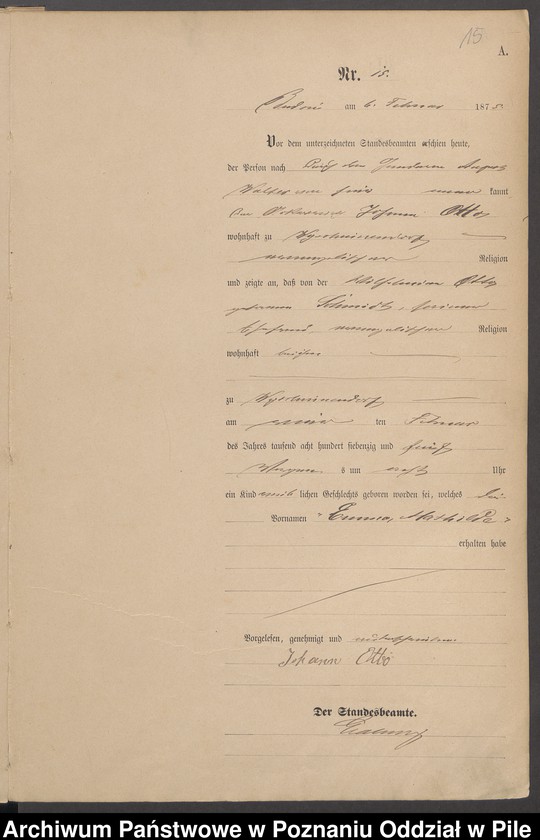 15
A.
Nr. 15.
am 6. Februar 1875.
Vor dem unterzeichneten Standesbeamten erschien heute,
der Person nach durch den Gendarm August
Walter von hier kannt
der Johann Otto
wohnhaft zu
evangelischer Religion
und zeigte an, daß von der Wilhelmine Otto
geborenen Schmidt, seiner
Ehefrau evangelischer Religion
wohnhaft bei ihm
zu
am ten Februar
des Jahres tausend acht hundert siebenzig und fünf
s um acht Uhr
ein Kind weiblichen Geschlechts geboren worden sei, welches die
Vornamen "Emma, Mathilde"
erhalten habe
Vorgelesen, genehmigt und unterschrieben.
Johann Otto
Der Standesbeamte.
Archiwum Państwowe w Poznaniu Oddział w Pile